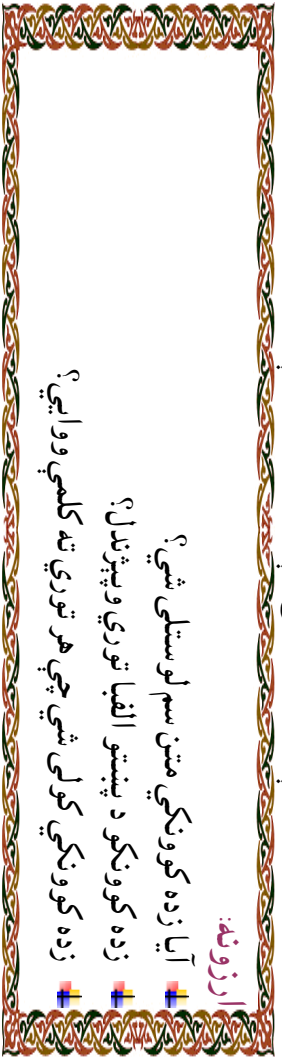 ارزونه:
آیا زده کوونکي متن سم لوستلی شي؟
زده کوونکو د پښتو الفبا توري وپېژندل؟
زده کوونکي کولی شي چې هر توري ته کلمې ووایي؟